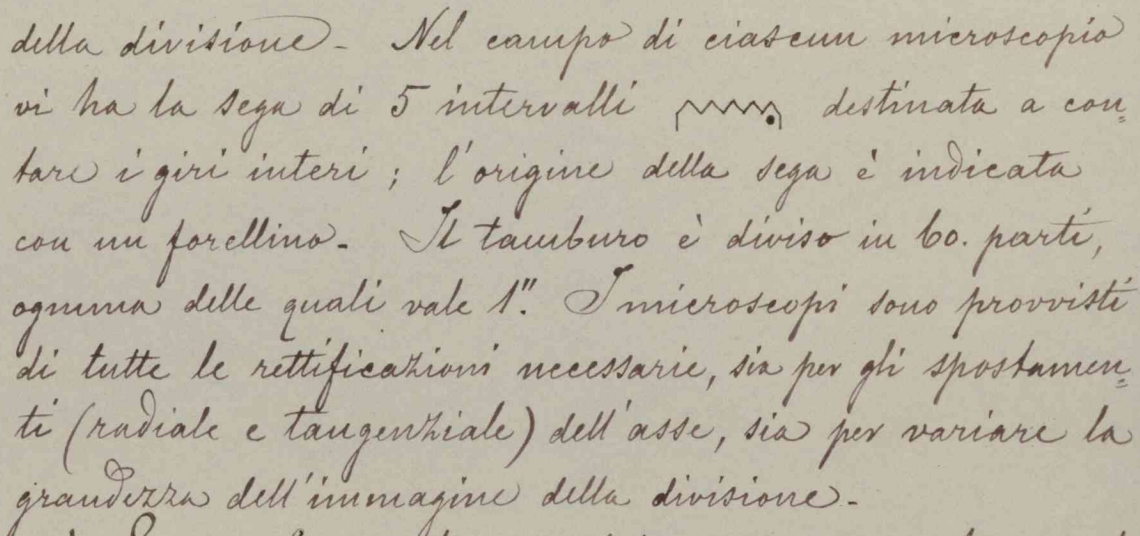 della divisione - Nel campo di ciascun microscopio
vi ha la sega di 5 intervalli destinata a con=
tare i giri interi ; l'origine della sega è indicata
con un forellino - Il tamburo è diviso in 60. parti,
ognuna delle quali vale 1". I microscopi sono provvisti
di tutte le rettificazioni necessarie, sia per gli spostamen=
ti (radiale e tangenziale) dell'asse, sia per variare la
grandezza dell'immagine della divisione -